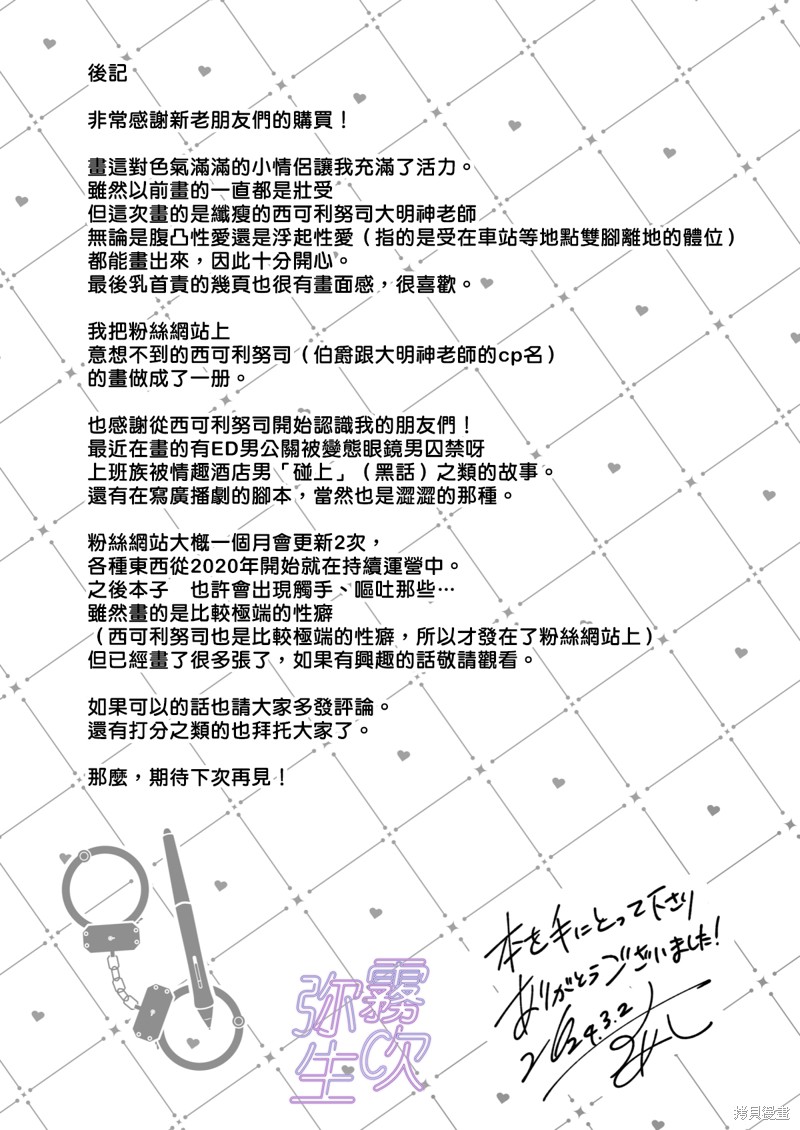 後記
非常感謝新老朋友們的購買！
畫這對色氣滿滿的小情侶讓我充滿了活力。
雖然以前畫的一直都是壯受
但這次畫的是纖瘦的西可利努司大明神老師
無論是腹凸性愛還是浮起性愛（指的是受在車站等地點雙腳離地的體位）
都能畫出來，因此十分開心。
最後乳首責的幾頁也很有畫面感，很喜歡。
我把粉絲網站上
意想不到的西可利努司（伯爵跟大明神老師的cp名）
的畫做成了一册。
也感謝從西可利努司開始認識我的朋友們！
最近在畫的有ED男公關被變態眼鏡男囚禁呀
上班族被情趣酒店男「碰上」（黑話）之類的故事。
還有在寫廣播劇的腳本，當然也是澀澀的那種。
粉絲網站大概一個月會更新2次，
各種東西從2020年開始就在持續運營中。
之後本子　也許會出現觸手、嘔吐那些…
雖然畫的是比較極端的性癖
（西可利努司也是比較極端的性癖，所以才發在了粉絲網站上）
但已經畫了很多張了，如果有興趣的話敬請觀看。
如果可以的話也請大家多發評論。
還有打分之類的也拜托大家了。
那麼，期待下次再見！
本を手にとって下さり
ありがとうございました！
2024.3.2
霧吹
弥生
拷貝漫畫